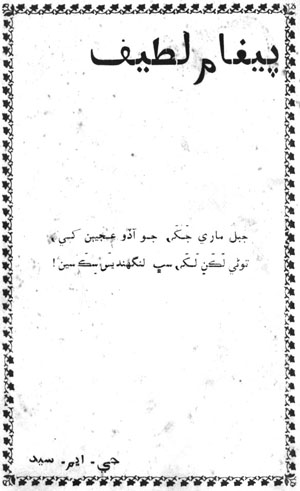 پيغام لطيف
جبل ماري جَڪَّر، جو آڏو عجيبن کي،
توڻي لَڪَّن لَڪَّر، سڀ لنگهنديس سِڪَ سين!
جي - ايم - سيد